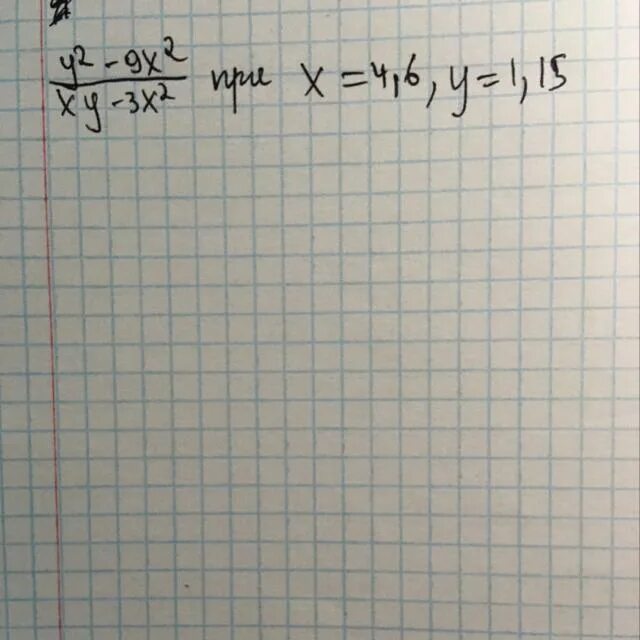 y² - 9x² / xy - 3x² при x = 4,6, y = 1,15